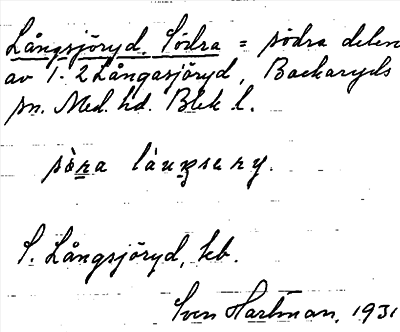 Långsjöryd, Södra = södra delen
av 1. 2 Långasjöryd, Backaryds
sn. Med. hd. Blek l.
S. Långsjöryd, kb.
Sven Hartman, 1931